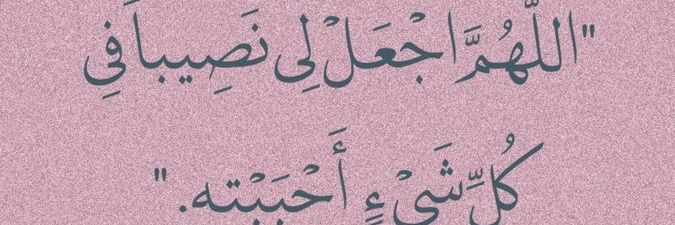 "اللَّهُمَّ اجْعَلْ لِي نَصِيباً فِي
كُلِّ شَيْءٍ أَحْبَبْته. "